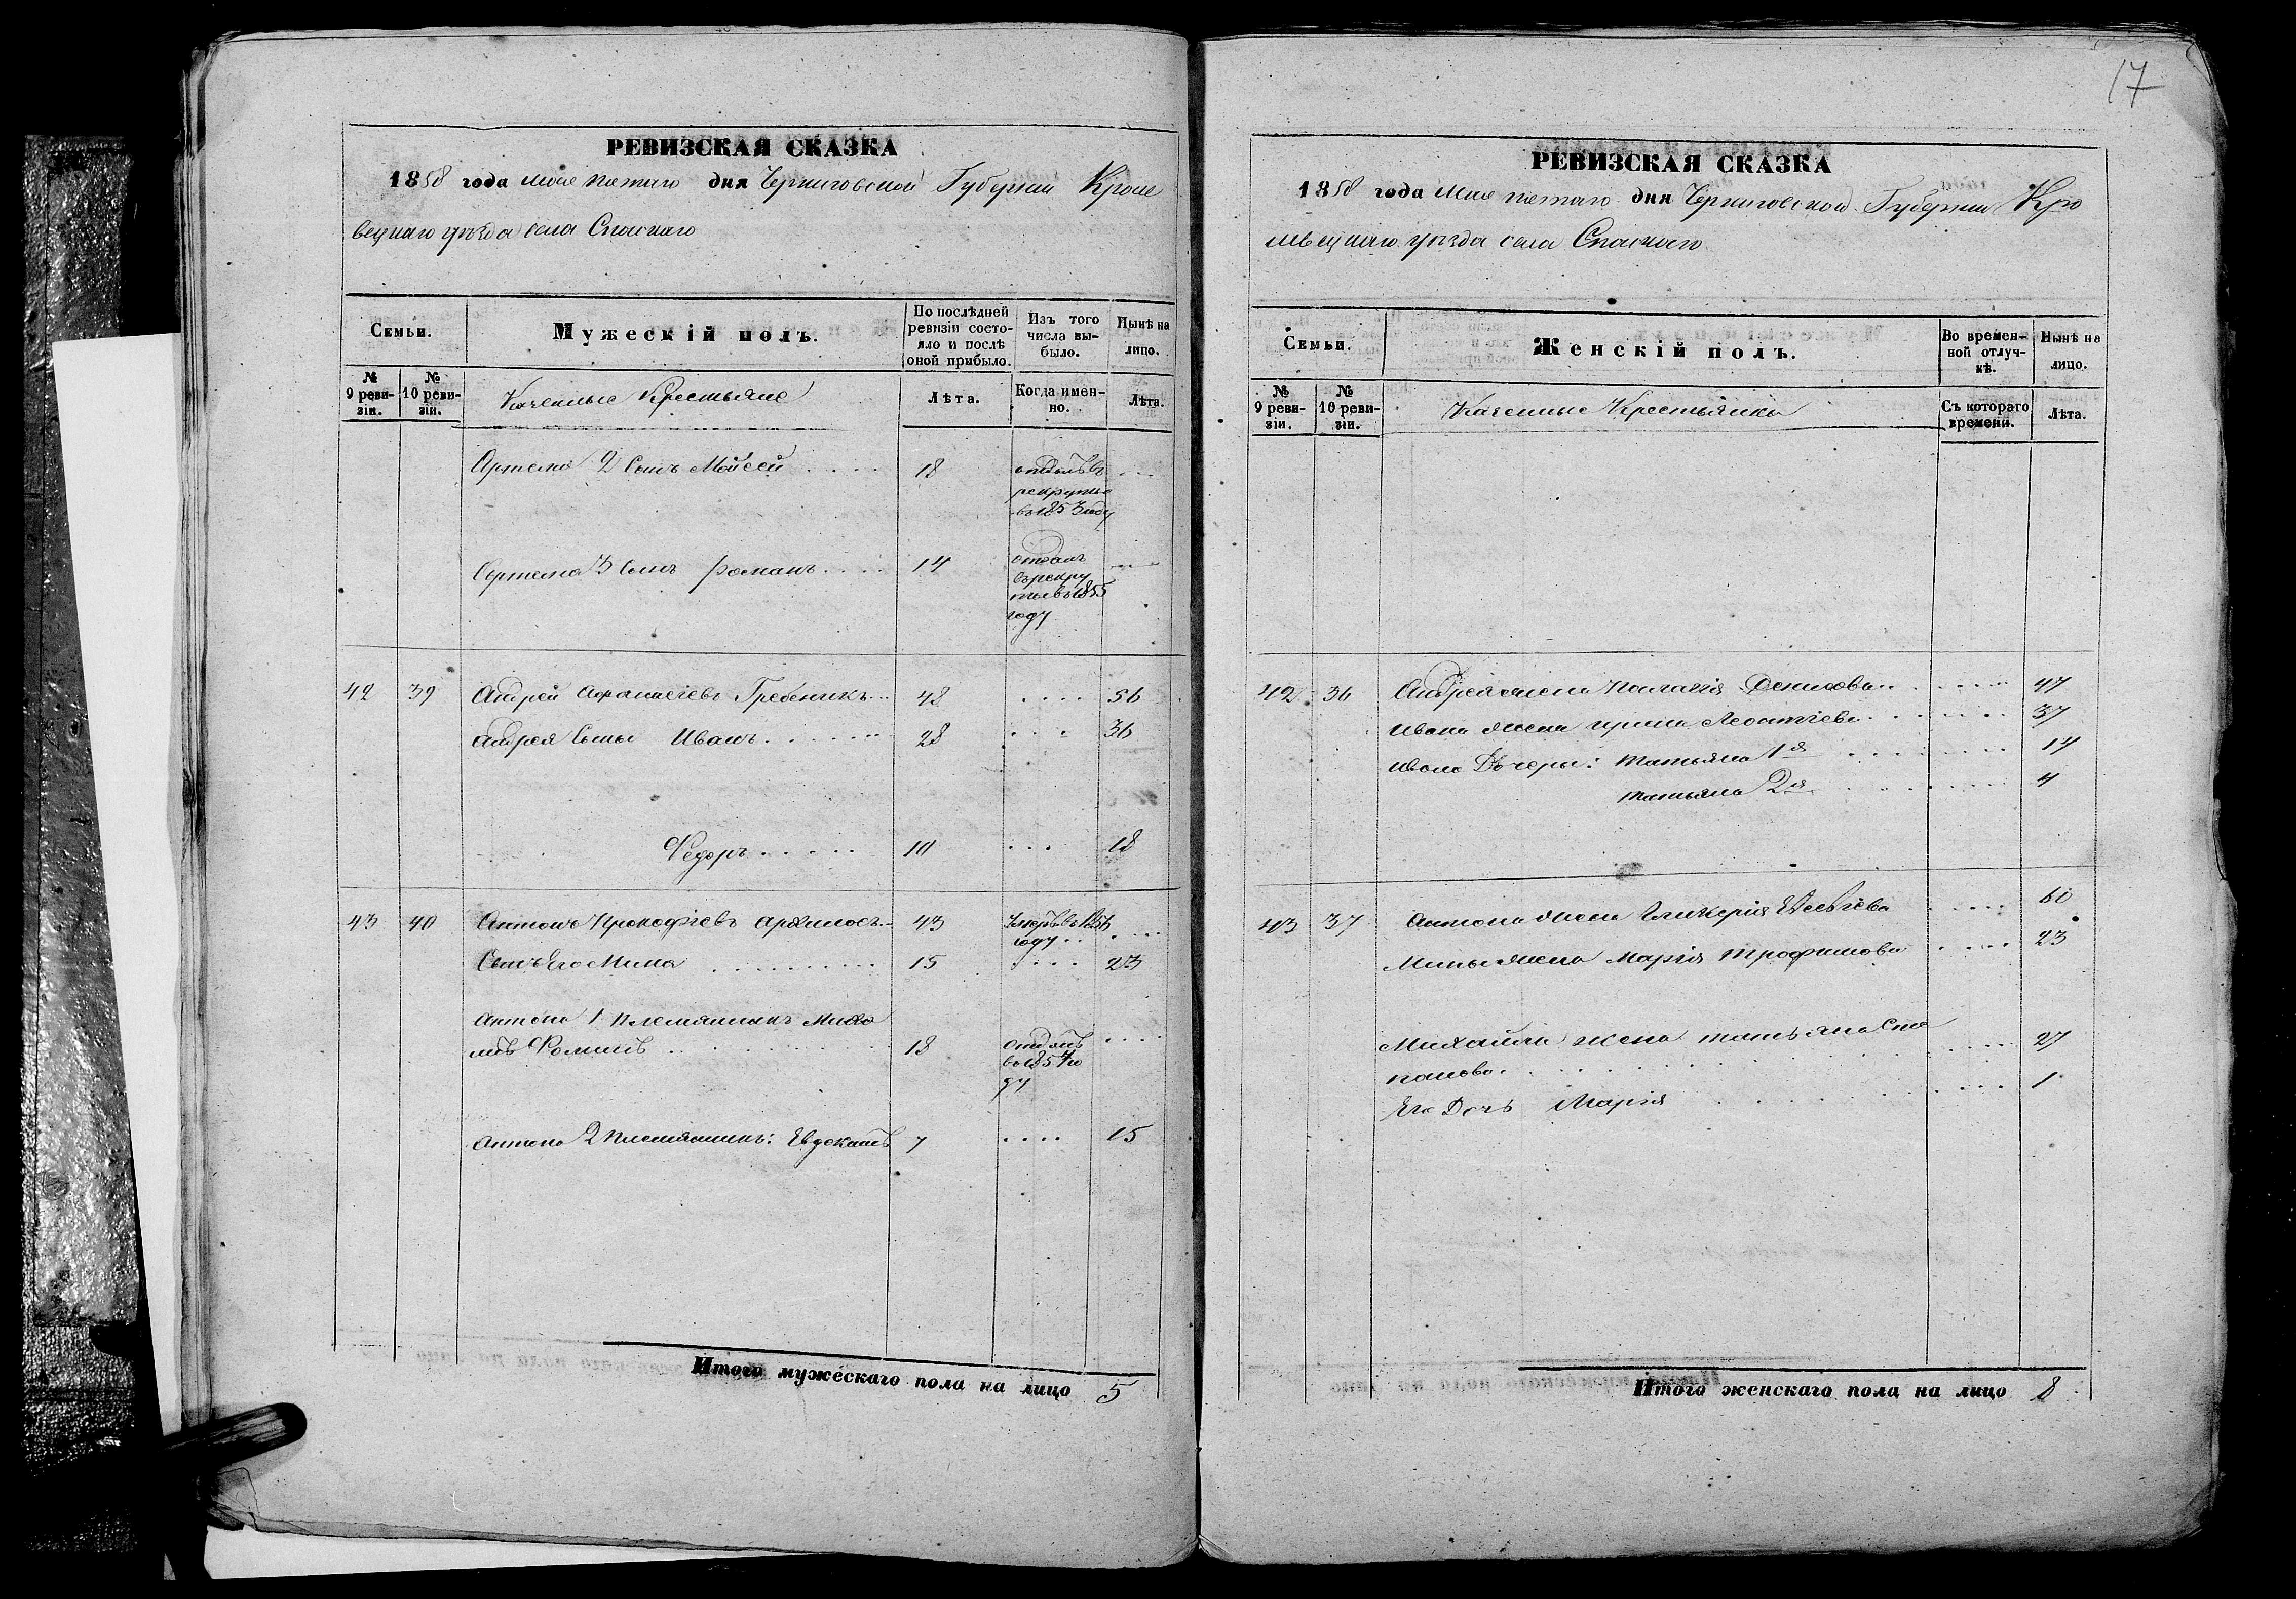 17
РЕВИЗСКАЯ СКАЗКА
1858 года мая пятаго дня Черниговской Губернии Кроле
вецкаго уѣзда села Спаскаго
Семьи.
Мужескій полъ.
По послѣдней ревизіи состояло и послѣ оной прибыло.
Изъ того числа выбыло.
Нынѣ на лицо.
№ 9 ревизіи.
№ 10 ревизіи.
Казенные Крестьяне
Лѣта.
Когда именно.
Лѣта.
Артема 2 Сынъ Мойсей . . . . 18 отданъ въ . . .
рекруты
въ 1853 году
Артема 3 Сынъ Романъ . . . . 14 отданъ
въ рекру
ты въ 1855
году
42 39 Андрей Афанасіевъ Гребеникъ . . . 48 . . . . 56
Андрея Сыны Иванъ . . . . . . 28 . . . 36
Федоръ . . . . . 10 . . . 18
43 40 Антонъ Прокофіевъ 43 Умеръ въ 1856
году . . . . .
Сынъ Его Мина . . . . . . . . . 15 . . . . 23
Антона 1 племянникъ Миха
илъ Фоминъ . . . . . . . . 18 отданъ . . . .
въ 1854 го
ду
Антона 2 племянникъ: Евдокимъ 7 . . . . 15
Итого мужескаго пола на лицо 5
РЕВИЗСКАЯ СКАЗКА
1858 года Мая пятаго дня Черниговской Губернии Кро
левецкаго уѣзда села Спаскаго
Семьи.
Женскій полъ.
Во временной отлучкѣ.
Нынѣ на лицо.
№ 9 ревизіи.
№ 10 ревизіи.
Казенные Крестьянки
Съ котораго времени.
Лѣта.
42 36 Андрея жена Пелагія Денисова . . . . . . . 47
Ивана жена Ирина Леонтіева . . . . . . . 37
Ивана Дочери: Татьяна 1я . . . . . . . . 14
Татьяна 2я . . . . . . . . 4
43 37 Антона жена Гликерія . . . . 60
Мины жена Марія Трофимова . . . . 23
Михайла жена Татьяна Сте
панова . . . . . . . . . . 27
Его Дочь Марія . . . . . . . . . 1
Итого женскаго пола на лицо 8